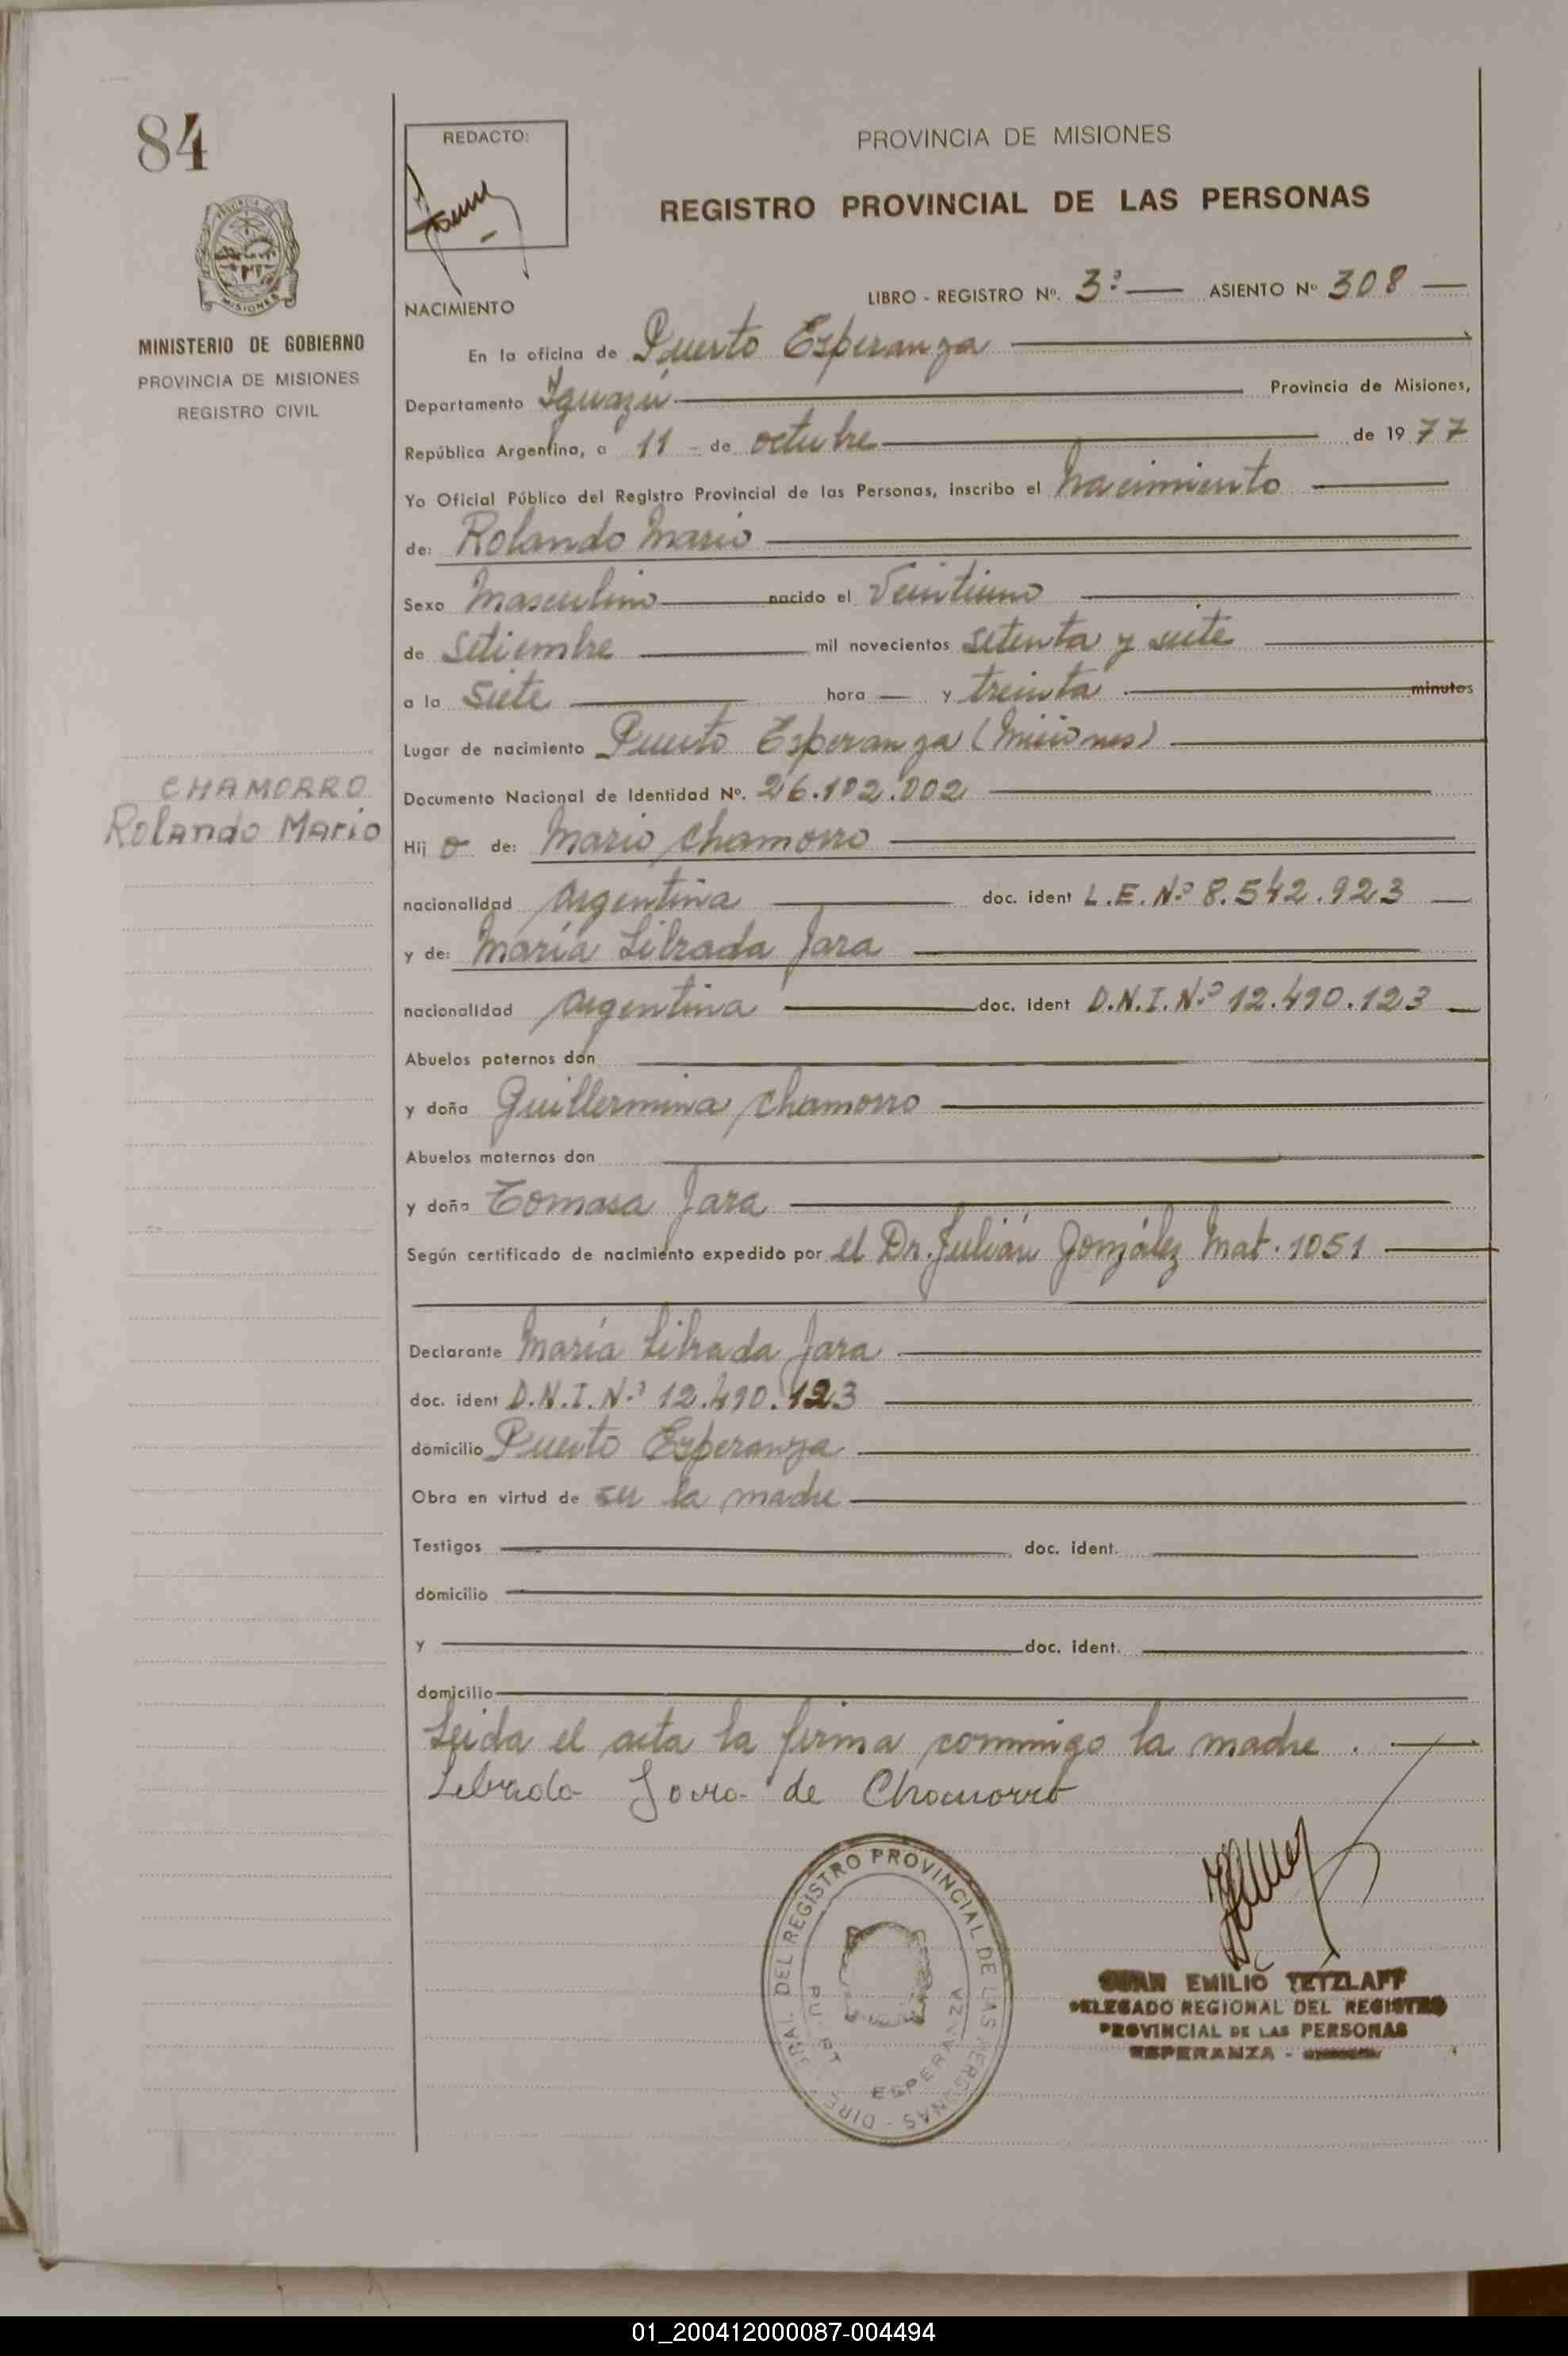 84
REDACTO:
PROVINCIA DE MISIONES
REGISTRO PROVINCIAL DE LAS PERSONAS
MINISTERIO DE GOBIERNO
PROVINCIA DE MISIONES
REGISTRO CIVIL
LIBRO - REGISTRO Nº. 3º ASIENTO Nº 308
NACIMIENTO
En la oficina de Puerto Esperanza
Departamento Iguazú Provincia de Misiones,
República Argentina, a 11 - de octubre de 19 77
Yo Oficial Público del Registro Provincial de las Personas, inscribo el nacimiento
de: Rolando Mario
Sexo Masculino nacido el Veintiuno
de Setiembre mil novecientos setenta y siete
a la siete hora y treinta minutos
Lugar de nacimiento Puerto Esperanza (Misiones)
CHAMORRO
Rolando Mario
Documento Nacional de Identidad Nº. 26.102.002
Hij o de: Mario Chamorro
nacionalidad Argentina doc. ident L.E. Nº 8.542.923
y de: María Librada Jara
nacionalidad Argentina doc. ident D.N.I. Nº 12.490.123
Abuelos paternos don
y doña Guillermina Chamorro
Abuelos maternos don
y doña Tomasa Jara
Según certificado de nacimiento expedido por el Dr. Julián González Mat. 1051
Declarante María Librada Jara
doc. ident D.N.I. Nº 12.490.123
domicilio Puerto Esperanza
Obra en virtud de ser la madre
Testigos doc. ident.
domicilio
y doc. ident.
domicilio
Leida el acta la firma conmigo la madre.
Librada Jara de Chamorro
DEL REGISTRO PROVINCIAL DE LAS PERSONAS
ESPERANZA
JUAN EMILIO TETZLAFF
DELEGADO REGIONAL DEL REGISTRO
PROVINCIAL DE LAS PERSONAS
ESPERANZA -
01_200412000087-004494